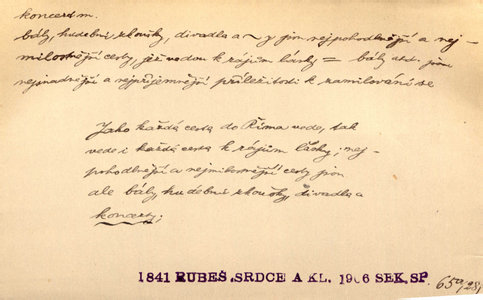 koncert m.
bály, hudební zkoušky, divadla a ~y jsou nejpohodlnější a nej-
milostnější cesty, jež vedou k rájům lásky = bály atd. jsou
nejsnadnější a nejpříjemnější příležitostí k zamilování se
Jako každá cesta do Říma vede, tak
vede i každá cesta k rájům lásky; nej-
pohodlnější a nejmilostnější cesty jsou
ale bály, hudební zkoušky, divadla a
koncerty;
1841 RUBEŠ, SRDCE A KL. 1906 SEK. SP.
65